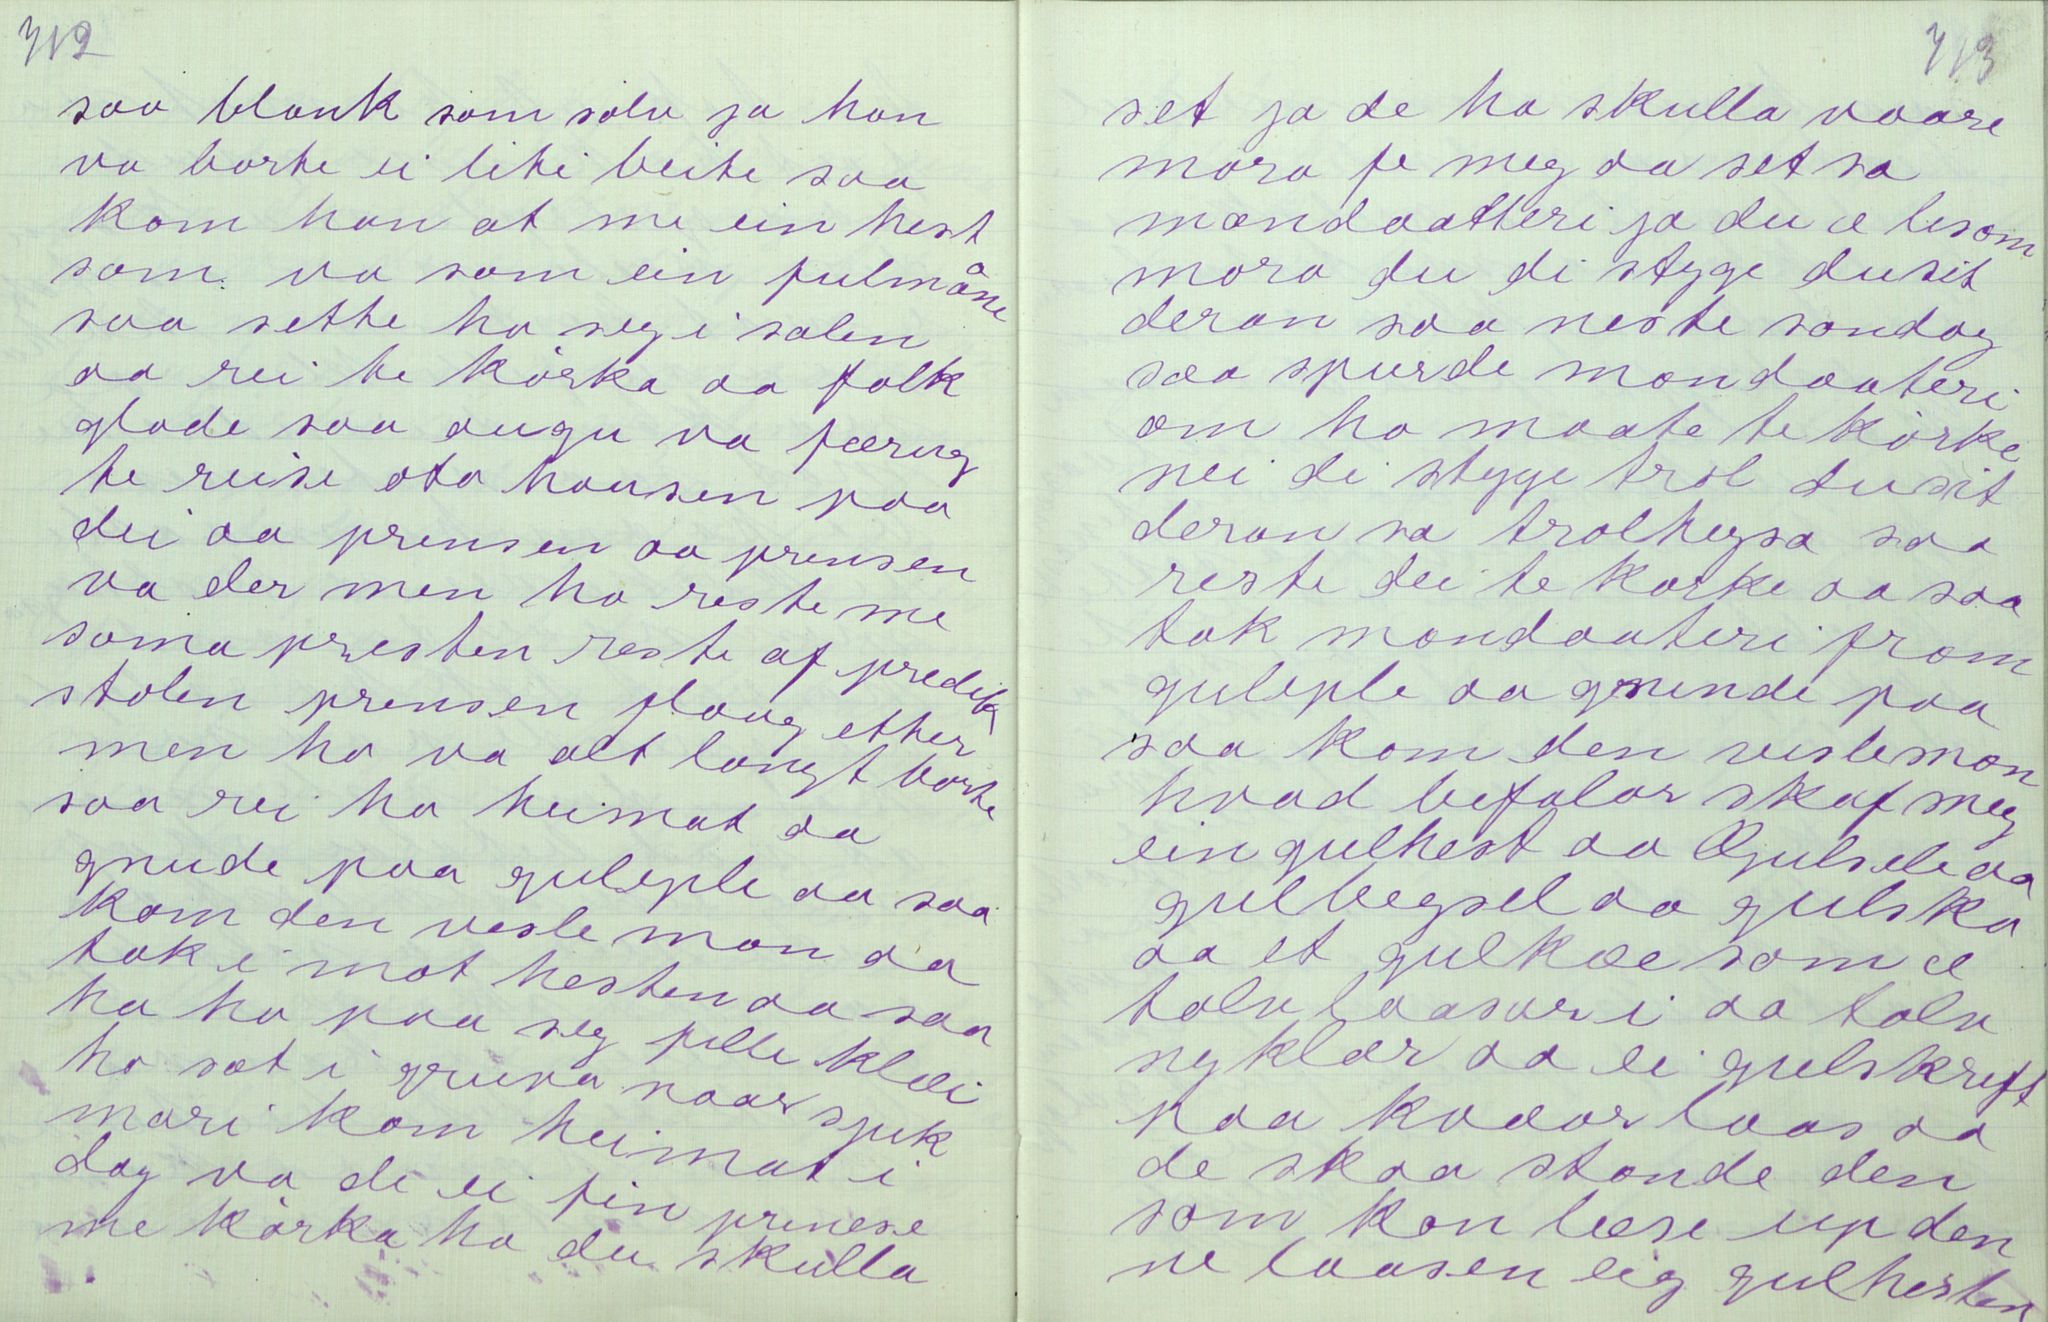 712
saa blank som sølv ja han
va borte ei liti beite saa
kom han at me ein hest
som va som ein fulmåne
saa sette ho seg i salen
aa rei te kørka aa folk
glode saa augu va færug
te reise ota hausen paa
dei aa prensen aa prensen
va der men ho reste me
soma presten reste af predik
stolen prensen flaug etter
men ho va alt langt borte
saa rei ho heimat aa
gnude paa guleple aa saa
kom den vesle man aa
tok i mot hesten aa saa
ha ho paa seg fille klæi
ho sat i gruva naar spik
mari kom heimat i
dag va de ei fin prinese
me kørka ha du skulla
713
set ja de ha skulla vaare
mora fe meg aa set sa
mandaatteri ja du æ lesom
mora du di stygge du sit
deran saa neste søndag
saa spurde mandaateri
om ho maate te kørke
nei di stygge trol du sit
deran sa trolhegsa saa
reste dei te kørke aa saa
tok mandaateri fram
guleple aa gnunde paa
saa kom den veslemæn
hvad befalar skaf meg
ein gulhest aa gulsele aa
gulbegsel aa gulsko
aa et gulkæe som æ
tolv laasar i aa tolv
nyklar aa ei gulskreft
paa kvaar laas aa
de skaa stande den
som kan læse up den
ne laasen eig gulhesten